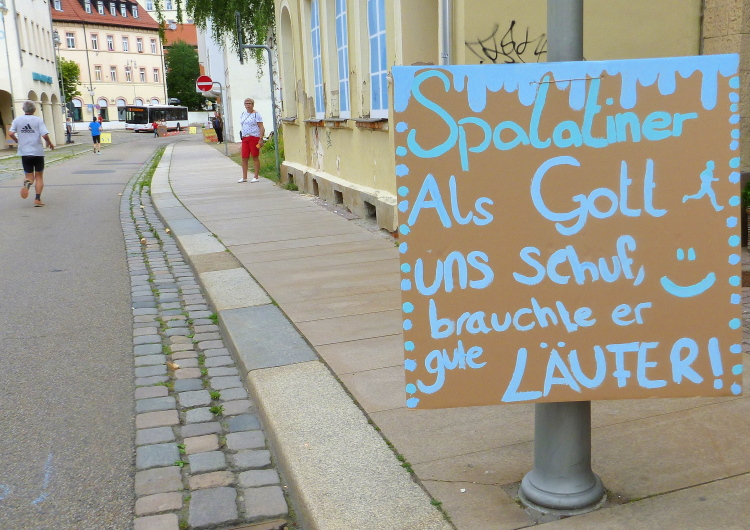 Spalatiner
Als Gott
uns schuf,
brauchte er
gute LÄUFER!